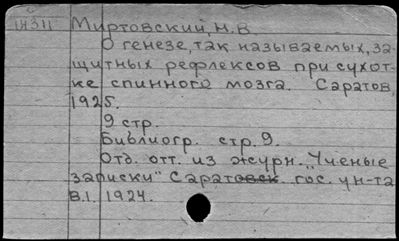 14311 Миртовский, Н.В.
О генезе, так называемых, за-
щитных рефлексов при сухот-
ке спинного мозга. Саратов,
1925.
9 стр.
Библиогр. стр. 9.
Отд. отт. из журн. "Ученые
записки" Саратовск. гос. ун-та
в.1. 1924.